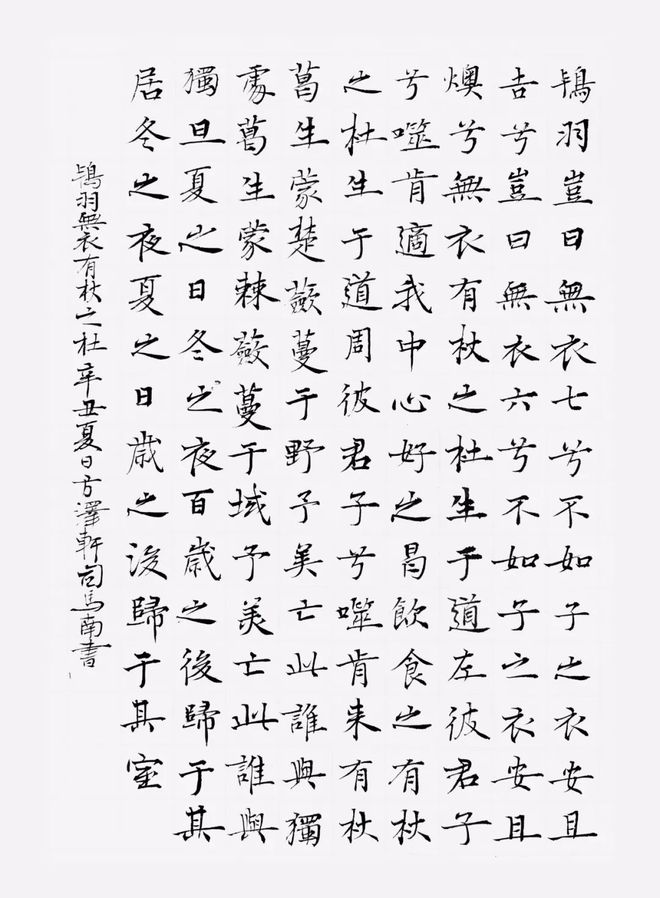 鴇羽豈日無衣七兮不如子之衣安且
吉兮豈曰無衣六兮不如子之衣安且
燠兮無衣有杕之杜生于道左彼君子
兮噬肯適我中心好之曷飲食之有杕
之杜生于道周彼君子兮噬肯来有杕
葛生蒙楚蘞蔓于野予美亡此誰與獨
處葛生蒙棘蘞蔓于域予美亡此誰與
獨旦夏之日冬之夜百歲之後歸于其
居冬之夜夏之日歲之後歸于其室
鴇羽無衣有杕之杜辛丑夏日方澤軒司馬南書